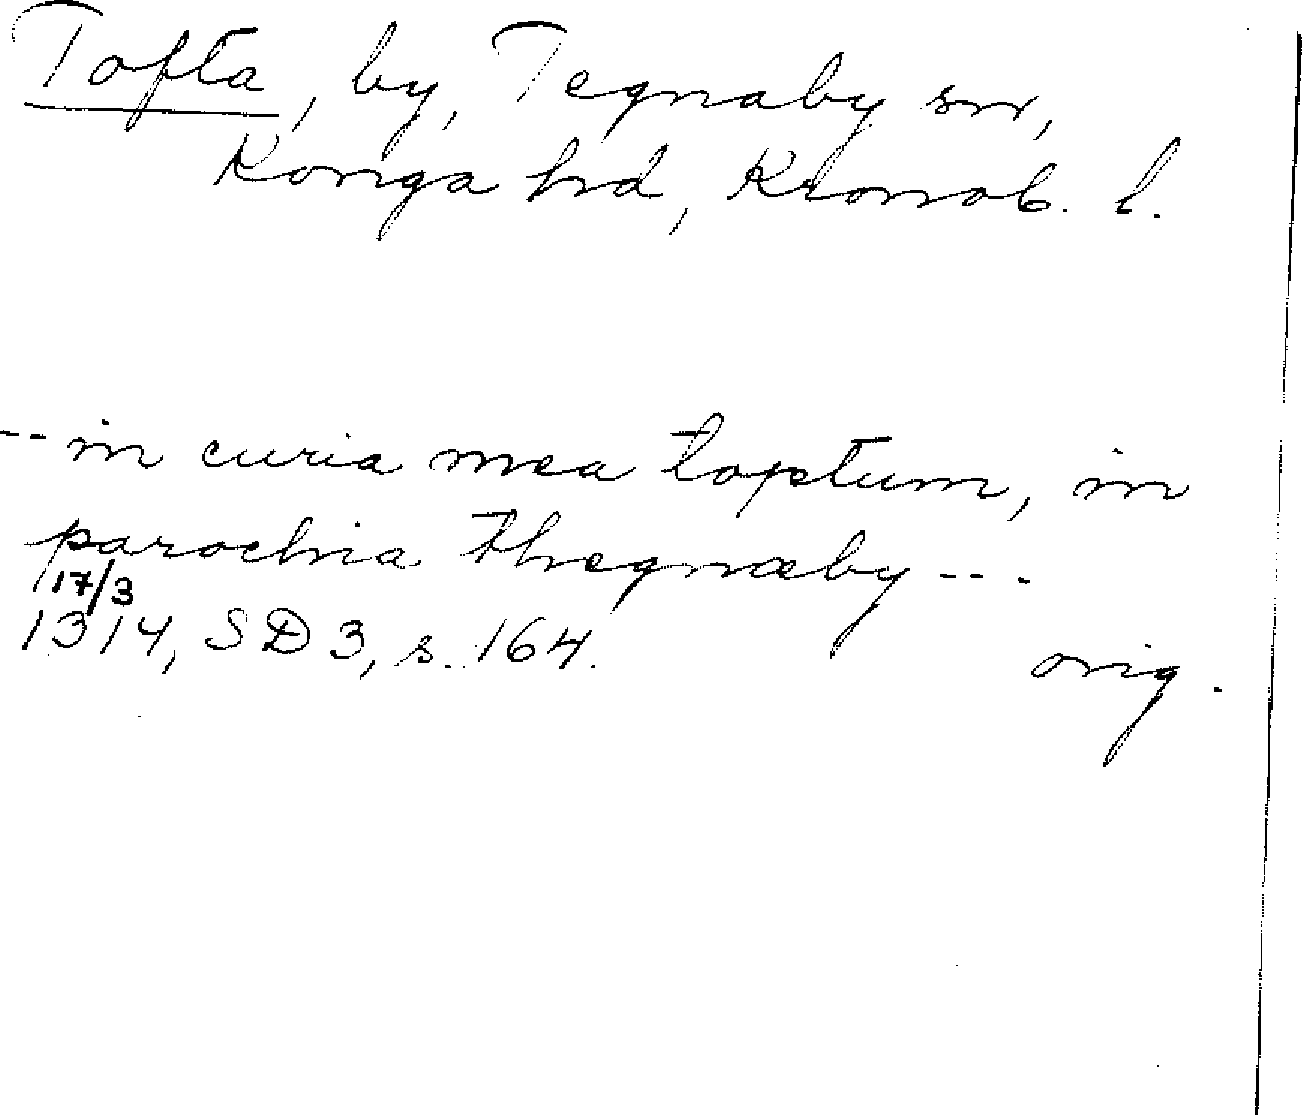 Tofta, by, Tegnaby sn,
Konga hd, Kronob. l.
-- in curia mea toptum, in
parochia thegnæby ---
17/3
1314, SD 3, s. 164.
orig.